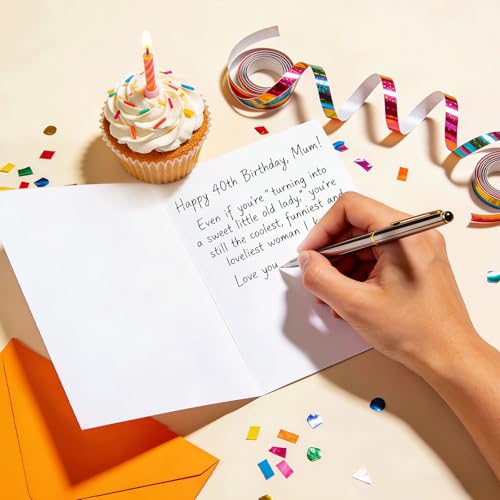 Happy 40th Birthday, Mum!
Even if you're "turning into
a sweet little old lady," you're
still the coolest, funniest and
loveliest woman I
Love you